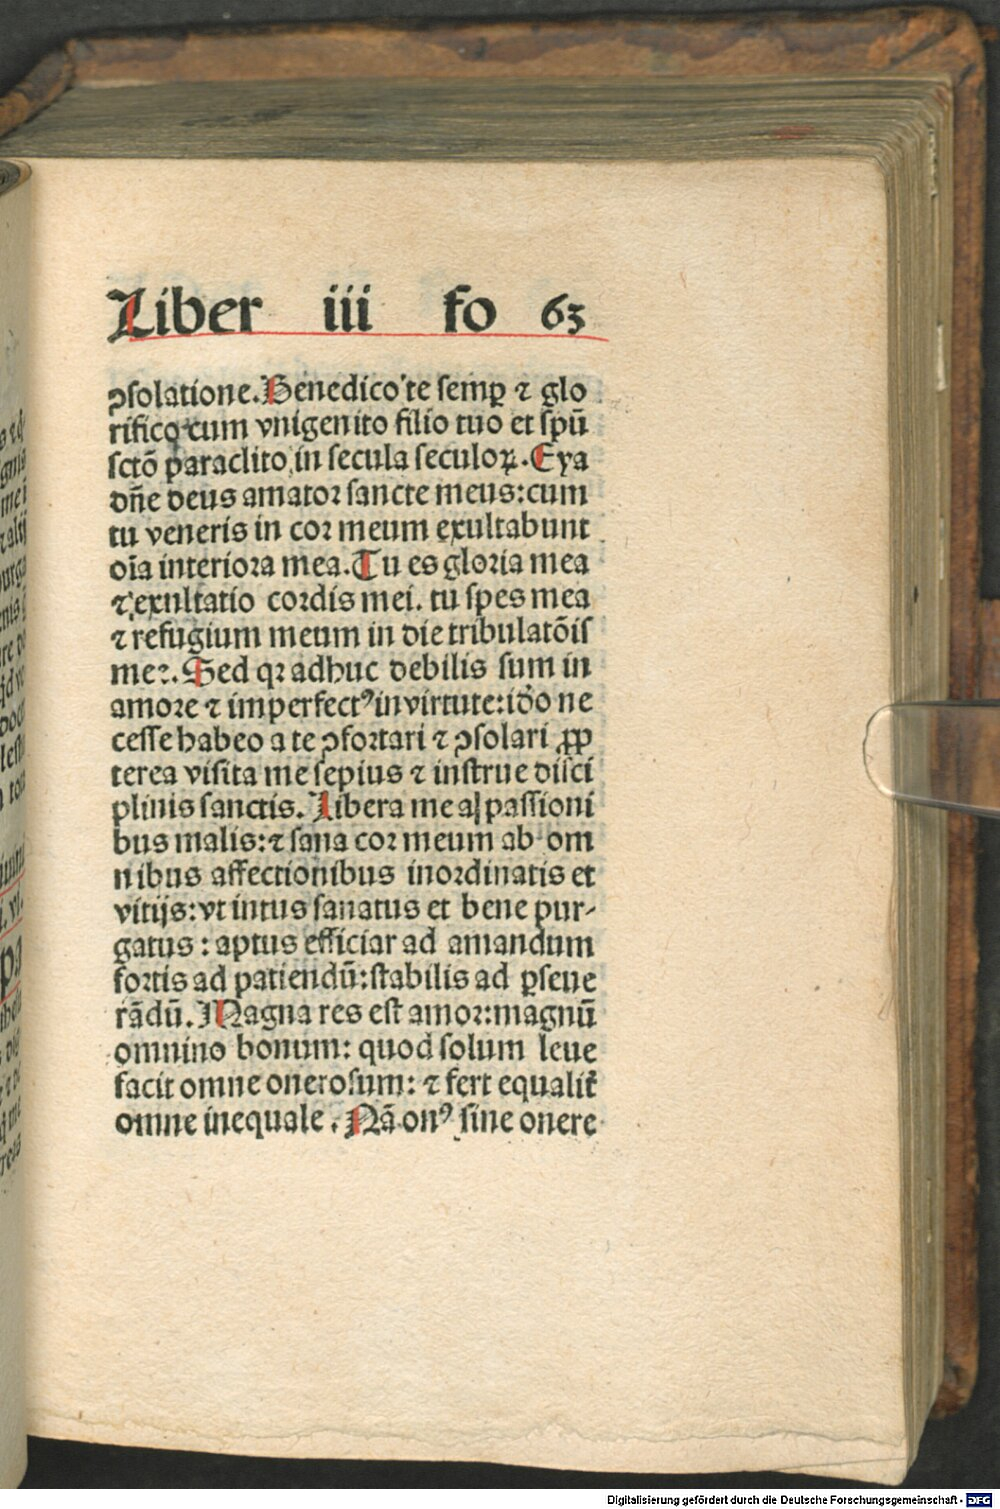 Liber iii fo 63
ꝯsolatione. Benedico te semꝑ ⁊ glo
rificoq cum vnigenito filio tuo et spū
sctō paraclito in secula seculoꝝ. Eya
dn̄e deus amator sancte meus: cum
tu veneris in cor meum exultabunt
oīa interiora mea. Tu es gloria mea
⁊ exultatio cordis mei. tu spes mea
⁊ refugium meum in die tribulatōis
mee. Sed qꝛ adhuc debilis sum in
amore ⁊ imperfectꝰ in virtute: idō ne
cesse habeo a te ꝯfortari ⁊ ꝯsolari ꝓp
terea visita me sepius ⁊ instrue disci
plinis sanctis. Libera me a passioni
bus malis: ⁊ sana cor meum ab om
nibus affectionibus inordinatis et
vitijs: vt intus sanatus et bene pur-
gatus: aptus efficiar ad amandum
fortis ad patiendū: stabilis ad ꝑseue
rādū. Magna res est amor: magnū
omnino bonum: quod solum leue
facit omne onerosum: ⁊ fert equalit̄
omne inequale. Nā onꝰ sine onere
Digitalisierung gefördert durch die Deutsche Forschungsgemeinschaft - DFG